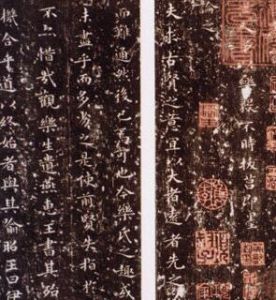 多以樂毅不時拔莒即墨
夫求古賢之意宜以大者遠者先
而難通然後已焉可也今樂氏之趣或
未盡乎而多劣之是使前賢失指於
不亦惜哉觀樂生遺燕惠王書其殆
機合乎道以終始者與其喻昭王曰伊